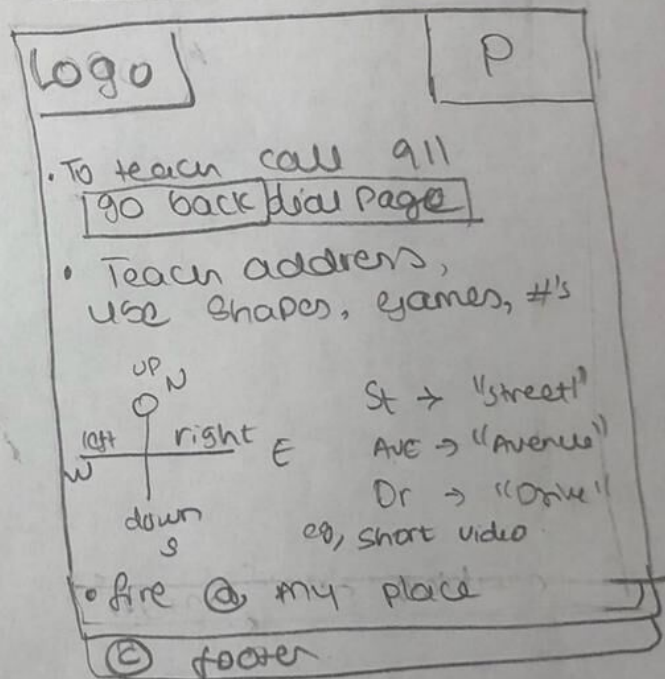 Logo
P
• To teach call 911
go back dial page
• Teach address,
use shapes, games, #'s
UP N
left right E
W
down
S
St → "street"
Ave → "Avenue"
Dr → "Drive"
eg, short video
• fire @ my place
© footer